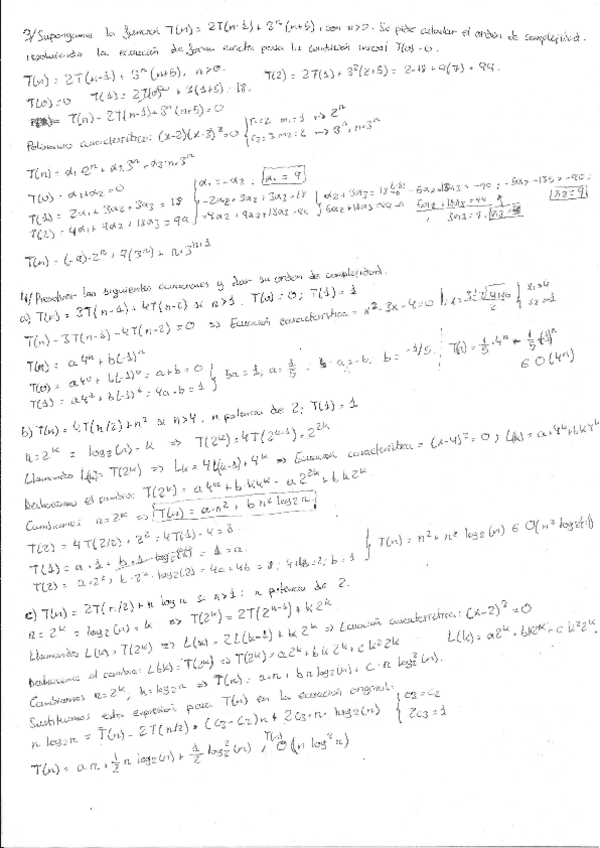 3/ Supongamos la función T(n) = 2T(n-1) + 3ⁿ(n+5), con n>0. Se pide calcular el orden de complejidad
resolviendo la ecuación de forma exacta para la condición inicial T(0)=0.
T(n) = 2T(n-1) + 3ⁿ(n+5), n>0.
T(0)=0 T(1) = 2T(0) + 3(1+5) = 18. T(2) = 2T(1) + 3²(2+5) = 2·18 + 9(7) = 99.
T(n) - 2T(n-1) + 3ⁿ(n+5) = 0
Polinomio característico: (x-2)(x-3)² = 0 { r₁=2 m₁=1 → 2ⁿ
r₂=3 m₂=2 → 3ⁿ, n·3ⁿ
T(n) = α₁·2ⁿ + α₂·3ⁿ + α₃·n·3ⁿ
T(0) = α₁+α₂ = 0
T(1) = 2α₁ + 3α₂ + 3α₃ = 18
T(2) = 4α₁ + 9α₂ + 18α₃ = 99
T(n) = (-9)·2ⁿ + 9(3ⁿ) + n·3ⁿ⁺¹
4/ Resolver las siguientes ecuaciones y dar su orden de complejidad.
a) T(n) = 3T(n-1) + 4T(n-2) si n>1. T(0)=0; T(1)=1
T(n) - 3T(n-1) - 4T(n-2) = 0 ⇒ Ecuación característica = x²-3x-4=0
T(n) = a4ⁿ + b(-1)ⁿ
T(0) = a4⁰ + b(-1)⁰ = a+b = 0
T(1) = a4¹ + b(-1)¹ = 4a-b = 1 } 5a=1, a=1/5 b=-1/5. T(n) = 1/5·4ⁿ - 1/5(-1)ⁿ
∈ O(4ⁿ)
b) T(n) = 4T(n/2) + n² si n>4, n potencia de 2; T(1)=1
n=2ᵏ = log₂(n) = k ⇒ T(2ᵏ) = 4T(2ᵏ⁻¹) + 2²ᵏ
Llamando L(k) = T(2ᵏ) ⇒ Lk = 4L(k-1) + 4ᵏ ⇒ Ecuación característica = (x-4)² = 0; L(k) = a·4ᵏ + bk4ᵏ
Deshacemos el cambio: T(2ᵏ) = a4ᵏ + bk4ᵏ = a2²ᵏ + bk2²ᵏ
Cambiamos n=2ᵏ ⇒ T(n) = a·n² + bn²log₂n.
T(2) = 4T(2/2) + 2² = 4T(1) + 4 = 8.
T(1) = a·1 + b·1·log₂(1) = 1 = a.
T(2) = a·2² + b·2²·log₂(2) = 4a+4b = 8; b=1 } T(n) = n² + n² log₂(n) ∈ O(n² log₂(n))
c) T(n) = 2T(n/2) + n log n si n>1: n potencia de 2.
n=2ᵏ = log₂(n) = k ⇒ T(2ᵏ) = 2T(2ᵏ⁻¹) + k2ᵏ
Llamando L(k) = T(2ᵏ) ⇒ L(k) = 2L(k-1) + k2ᵏ ⇒ Ecuación característica: (x-2)³ = 0
Deshacemos el cambio: L(k) = T(2ᵏ) ⇒ T(2ᵏ) = a2ᵏ + bk2ᵏ + ck²2ᵏ L(k) = a2ᵏ + bk2ᵏ + ck²2ᵏ
Cambiamos n=2ᵏ, k=log₂n ⇒ T(n) = a·n + bn log₂(n) + c·n log₂²(n).
Sustituimos esta expresión para T(n) en la ecuación original:
n log₂n = T(n) - 2T(n/2) = (c₃-c₂)n + 2c₃·n·log₂(n) { c₃=c₂
2c₃=1
T(n) = an + 1/2 n log₂(n) + 1/2 log₂²(n), T(n) O(n log² n)